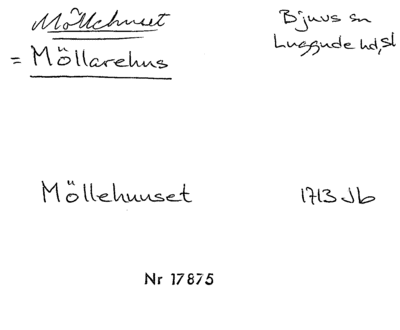 Möllehuset
Bjuvs sn
= Möllarehus
Luggude hd, sk
Möllehuuset
1713 Jb
Nr 17875